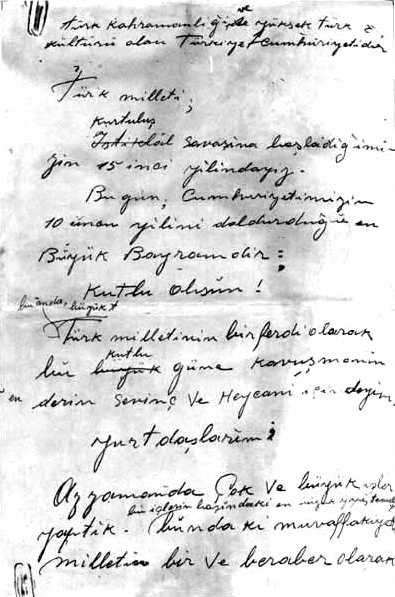 Türk kahramanlığı ve yüksek Türk
kültürü olan Türkiye Cumhuriyetidir
Türk milleti;
Kurtuluş
İstiklâl savaşına başladığımı-
zın 15 inci yılındayız.
Bugün, Cumhuriyetimizin
10 uncu yılını doldurduğu en
Büyük Bayramdır;
Kutlu olsun!
bu anda, büyük t
Türk milletinin bir ferdi olarak
kutlu
bu büyük güne kavuşmanın
en derin sevinç ve Heycanı için deyim,
yurtdaşlarım;
Az zamanda Çok ve büyük işler
bu işlerin başındaki en
yaptık. bundaki muvaffakıyet
milletin bir ve beraber olarak